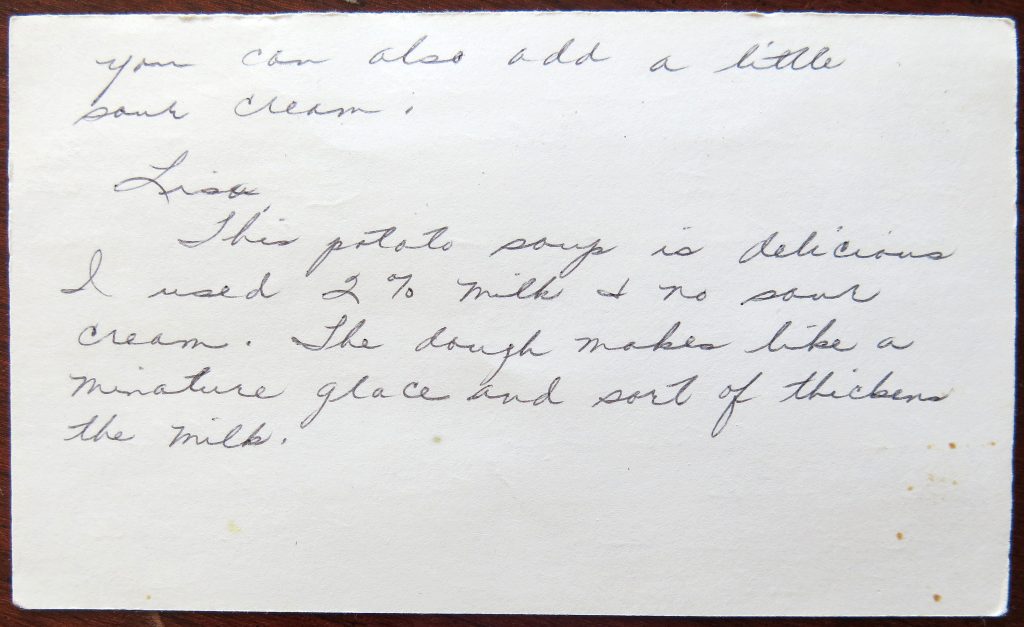 you can also add a little
sour cream.
Lisa,
This potato soup is delicious
I used 2% milk & no sour
cream. The dough makes like a
minature glace and sort of thickens
the milk.